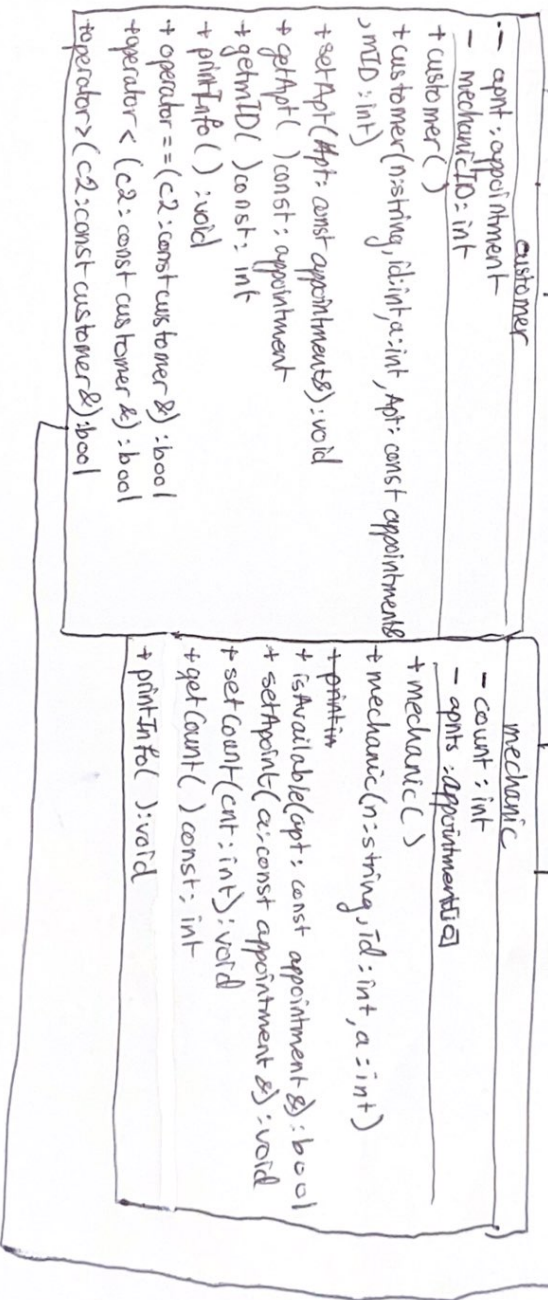 customer
- apnt : appointment
- mechanicID : int
+ customer( )
+ customer(n:string, id:int, a:int, Apt: const appointment&
, mID : int)
+ setApt(Apt: const appointment&) : void
+ getApt( ) const : appointment
+ getmID( ) const : int
+ printInfo( ) : void
+ operator == (c2 : const customer &) : bool
+ operator < (c2 : const customer &) : bool
+ operator > (c2 : const customer &) : bool
mechanic
- count : int
- apnts : appointment[10]
+ mechanic( )
+ mechanic(n:string, id : int, a : int)
+ printin
+ isAvailable(apt : const appointment &) : bool
+ setApoint(a : const appointment &) : void
+ setCount(cnt : int) : void
+ getCount( ) const : int
+ printInfo( ) : void